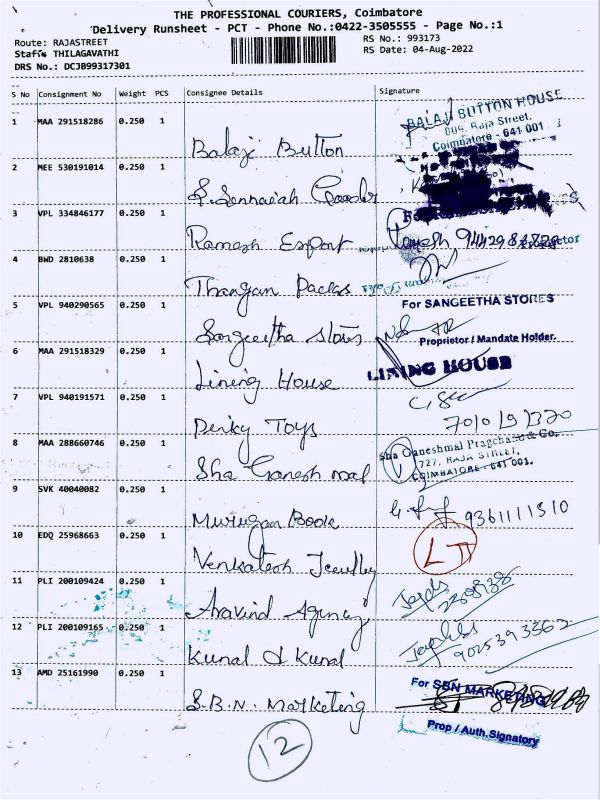 THE PROFESSIONAL COURIERS, Coimbatore
Delivery Runsheet - PCT - Phone No.:0422-3505555 - Page No.:1
Route: RAJASTREET
RS No.: 993173
Staffs THILAGAVATHI
RS Date: 04-Aug-2022
DRS No.: DCJB99317301
S No Consignment No Weight PCS Consignee Details Signature
1 MAA 291518286 0.250 1
BALAJI BUTTON HOUSE
Raja Street,
Coimbatore - 641 001
Balaji Button
2 MEE 530191014 0.250 1
3 VPL 334846177 0.250 1
Ramesh Export
4 BWD 2810638 0.250 1
Thangam Packs
5 VPL 940290565 0.250 1
For SANGEETHA STORES
Sangeetha stores
Proprietor / Mandate Holder.
6 MAA 291518329 0.250 1
LINING HOUSE
Lining House
7 VPL 940191571 0.250 1
Pinky Toys
8 MAA 288660746 0.250 1
Sha Ganeshmal Pragchand & Co.
727, RAJA STREET,
COIMBATORE - 641 001.
Sha Ganesh mal
9 SVK 40040082 0.250 1
9361111510
Murugan Book
10 EDQ 25968663 0.250 1
Venkatesh
11 PLI 200109424 0.250 1
Aravind Agency
12 PLI 200109165 0.250 1
9025393362
Kunal & Kunal
13 AMD 25161990 0.250 1
For SBN MARKETING
S.B.N. Marketing
Prop / Auth.Signatory
12